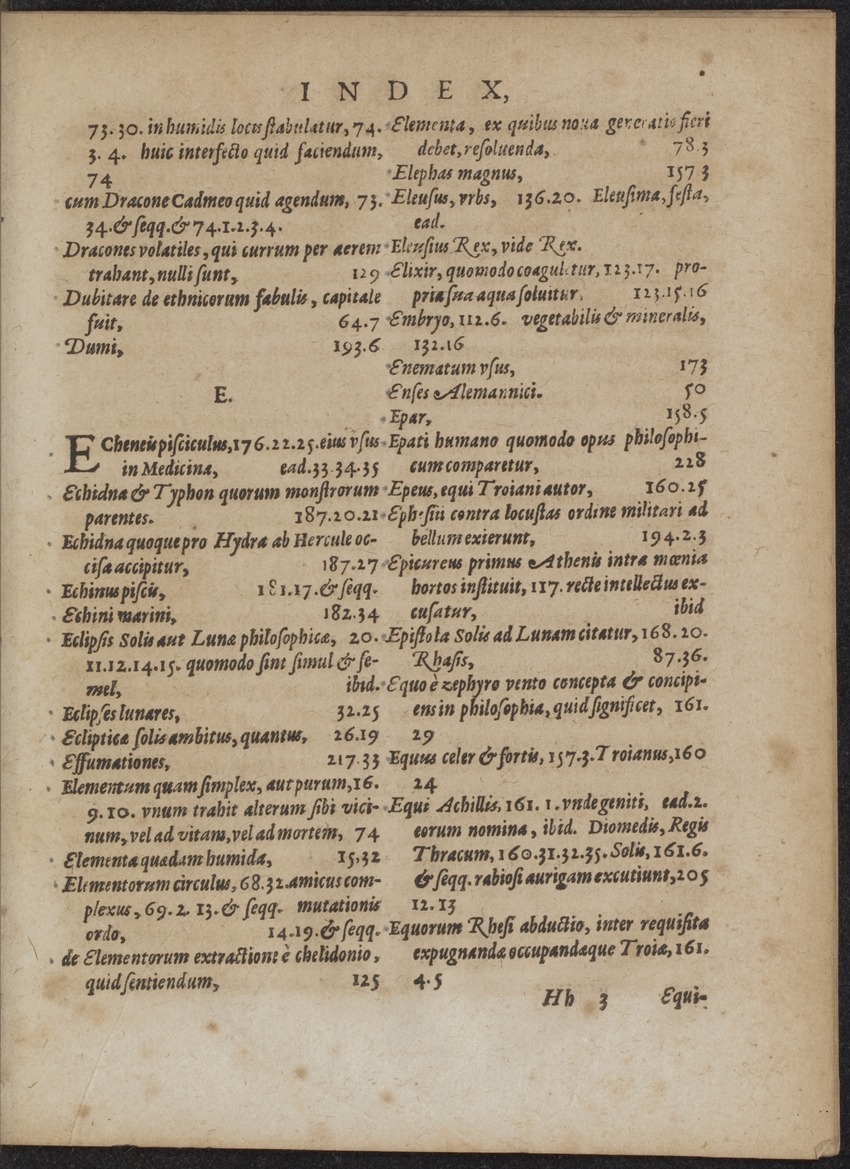 INDEX,
73.30. in humidis locis ſtabulatur, 74.
3. 4. huic interfecto quid faciendum,
74
cum Dracone Cadmeo quid agendum, 73.
34. & ſeqq. & 74.1.2.3.4.
Dracones volatiles, qui currum per aerem
trahant, nulli ſunt, 129
Dubitare de ethnicorum fabulis, capitale
fuit, 64.7
Dumi, 193.6
E.
ECheneis piſciculus, 176.22.25. eius vſus
in Medicina, ead. 33 34.35
Echidna & Typhon quorum monſtrorum
parentes. 187.20.21
Echidna quoque pro Hydra ab Hercule oc-
ciſa accipitur, 187.27
Echinus piſcis, 181.17. & ſeqq.
Echini marini, 182.34
Eclipſis Solis aut Lunæ philoſophicæ, 20.
11.12.14.15. quomodo ſint ſimul & ſe-
mel, ibid.
Eclipſes lunares, 32.25
Eclipticæ ſolis ambitus, quantus, 26.19
Effumationes, 217.33
Elementum quam ſimplex, aut purum, 16.
9.10. vnum trahit alterum ſibi vici-
num, vel ad vitam, vel ad mortem, 74
Elementa quædam humida, 15.32
Elementorum circulus, 68.32. amicus com-
plexus, 69.2. 13. & ſeqq. mutationis
ordo, 14.19. & ſeqq.
de Elementorum extractione è chelidonio,
quid ſentiendum, 125
Elementa, ex quibus noua generatio fieri
debet, reſoluenda, 78.3
Elephas magnus, 157 3
Eleuſus, vrbs, 136.20. Eleuſima, feſta,
ead.
Eleuſius Rex, vide Rex.
Elixir, quomodo coaguletur, 123.17. pro-
pria ſua aqua ſoluitur, 123.15.16
Embryo, 112.6. vegetabilis & mineralis,
132.16
Enematum vſus, 173
Enſes Alemannici. 50
Epar, 158.5
Epati humano quomodo opus philoſophi-
cum comparetur, 228
Epeus, equi Troiani autor, 160.25
Epheſiii contra locuſtas ordine militari ad
bellum exierunt, 194.2.3
Epicureus primus Athenis intra mœnia
hortos inſtituit, 117. recte intellectus ex-
cuſatur, ibid
Epiſtola Solis ad Lunam citatur, 168.20.
Rhaſis, 87.36.
Equo è zephyro vento concepta & concipi-
ens in philoſophia, quid ſignificet, 161.
29
Equus celer & fortis, 157.3. Troianus, 160
24
Equi Achillis, 161. 1. vnde geniti, ead. 2.
eorum nomina, ibid. Diomedis, Regis
Thracum, 160.31.32.35. Solis, 161.6.
& ſeqq. rabioſi aurigam excutiunt, 205
12.13
Equorum Rheſi abductio, inter requiſita
expugnandæ occupandæque Troiæ, 161.
4.5
Hh 3 Equi-